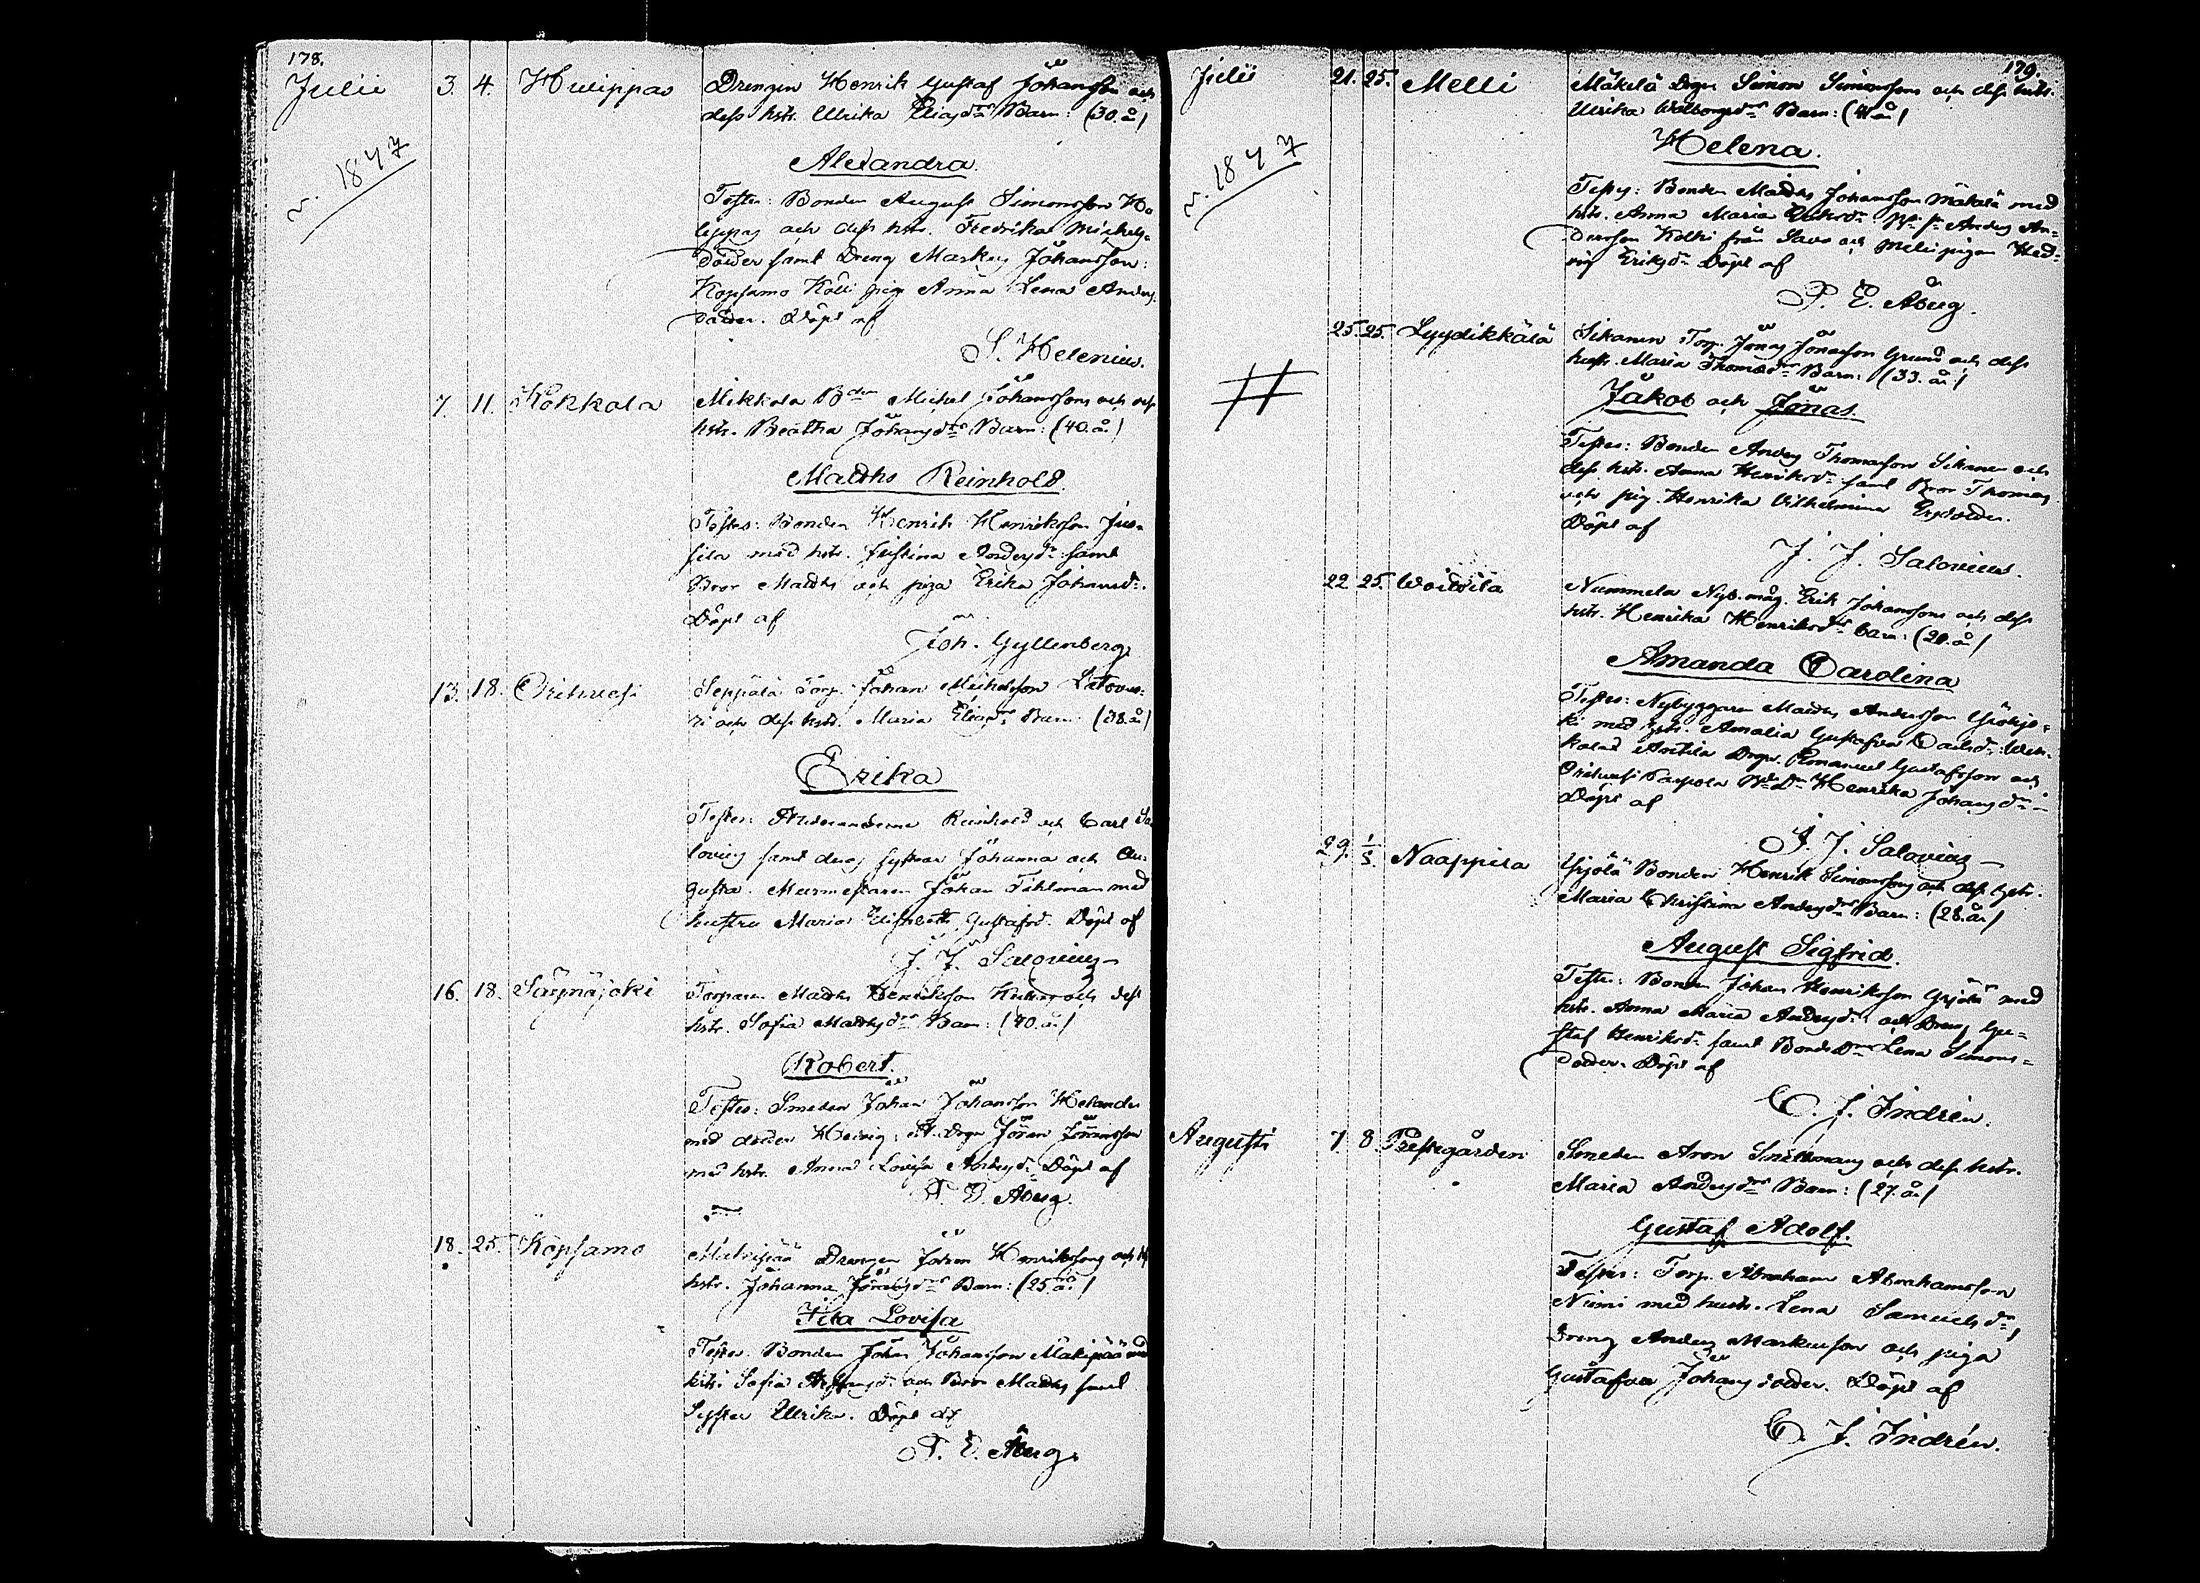 178.
Julii 3. 4. Huuippas Drengen Henrik Gustaf Johansson och
v. 1847
dess hstr. Ulrika Eliasdrs Barn: (30. år)
Alexandra.
Testes: Bonden August Simonsson
och dess hstr. Fredrika Michels-
dotter samt Dreng Markus Johansson
Köpsamo Kolli piga Anna Lena Anders
dotter. Döpt af
S. Helenius.
7. 11. Kokkala Mikkola Bden Michel Johanssons och dess
hstr. Beatha Johansdrs Barn: (40. år)
Matths Reinhold.
Testes: Bonden Henrik Henriksson Jus-
sila med hstr. Justina Andersdr samt
Bror Matths och piga Erika Johansdr.
Döpt af
Joh. Gyllenberg
13. 18. Orihvesi Seppälä Torp. Johan Michelsson
ri och dess hstr. Maria Eliasdrs Barn: (38. år)
Erika
Testes: Studeranderne Reinhold och Carl Sa
lovius samt deras systrar Johanna och Au-
gusta. Murmestaren Johan Tihlman med
hustru Maria Elisabeth Gustafsd. Döpt af
J. J. Salovius
16. 18. Säynäjoki Torparen Matths Henriksson och dess
hstr. Sofia Mattsdrs Barn: (40. år)
Robert.
Testes: Smeden Johan Johansson Helander
med dotter Hedvig, Dngn Jöran Jöransson
med hstr. Anna Lovisa Andersdr. Döpt af
F. E. Åberg.
18. 25. Köpsamo Mäkipää Drengen Johan Henrikssons och dess
hstr. Johanna Barn: (25. år)
Lovisa
Testes. Bonden Johan Johansson Mäkipää med
hstr. Sofia och Bror Matths samt
Syster Ulrika. Döpt af
F. E. Åberg.
179.
Julii 21. 25. Melli Mäkelä Dngn Simon Simonssons och dess hstr.
v. 1847
Ulrika Barn: (41 år)
Helena.
Testes: Bonden Matths Johansson Mäkelä med
hstr. Anna Maria Anders An-
dersson Kolki från Savo och Melli pigan Hed-
vig Eriksdr. Döpt af
F. E. Åberg.
25. 25. Lyydikkälä Sikanen Torp. Jonas Jonasson Grund och dess
hustr. Maria Thomasdrs Barn: (33. år)
#
Jakob och Jonas.
Testes: Bonden Anders Thomasson Sikanen och
dess hstr. Anna Henriksdr. samt Bror Thomas
och pig. Henrika Vilhelmina
Döpt af
J. J. Salovius.
22 25. Woitila Nummela Nyb. måg. Erik Johanssons och dess
hstr. Henrika Henriksdrs barn: (20. år)
Amanda Carolina
Testes: Nybyggaren Matths Andersson
ki med hstr. Amalia Gustafva Carlsdr.
Anttila Drgn. Emanuel Gustafsson och
Orihvesi Henrika Johansdr
Döpt af
J. J. Salovius
29. 1/8. Naappila Yrjölä Bonden Henrik Simonssons och dess hstr.
Maria Christina Andersdrs Barn: (28. år)
August Sigfrid.
Testes: Bonden Johan Henriksson Yrjölä med
hstr. Anna Maria Andersdr. och Dreng Gu-
staf Henriksdr samt BondeDrn Lena Simons-
dotter. Döpt af
C. J. Indrén.
Augusti 7. 8. Prestegården Smeden Aron Snellmans och dess hstr.
Maria Andersdrs Barn: (27. år)
Gustaf Adolf.
Testes: Torp. Abraham Abrahamsson
Niemi med hustr. Lena Samuelsdr,
Dreng Anders Markusson och piga
Gustafva Johansdotter. Döpt af
C. J. Indrén.